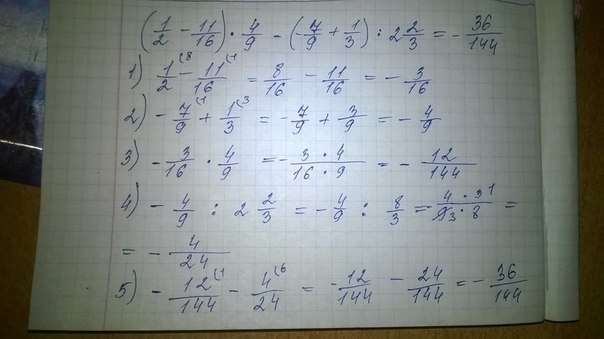 (1/2 - 11/16) · 4/9 - (7/9 + 1/3) : 2 2/3 = - 36/144
1) 1/2 (8 - 11/16 (1 = 8/16 - 11/16 = - 3/16
2) - 7/9 (1 + 1/3 (3 = - 7/9 + 3/9 = - 4/9
3) - 3/16 · 4/9 = - 3 · 4/16 · 9 = - 12/144
4) - 4/9 : 2 2/3 = - 4/9 : 8/3 = - 4 · 3 1/9 3 · 8 =
= - 4/24
5) - 12/144 (1 - 4/24 (6 = - 12/144 - 24/144 = - 36/144